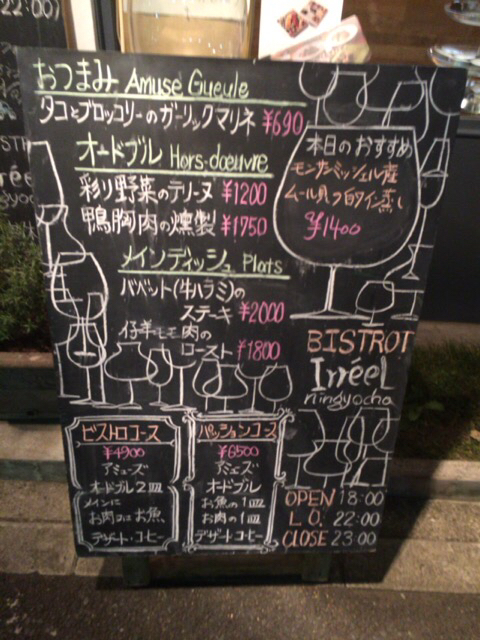 22:00)
おつまみ Amuse Gueule
タコとブロッコリーのガーリックマリネ ¥690
オードブル Hors-dœuvre
彩り野菜のテリーヌ ¥1200
鴨胸肉の燻製 ¥1750
メインディッシュ Plats
バベット(牛ハラミ)の
ステーキ ¥2000
仔羊モモ肉の
ロースト ¥1800
本日のおすすめ
モンサンミッシェル産
ムール貝の白ワイン蒸し
¥1400
BISTROT
Irréel
ningyocho
ビストロコース
¥4900
アミューズ
オードブル2皿
メインに
お肉又はお魚
デザート・コーヒー
パッションコース
¥6500
アミューズ
オードブル
お魚の1皿
お肉の1皿
デザート・コーヒー
OPEN 18:00
L.O. 22:00
CLOSE 23:00